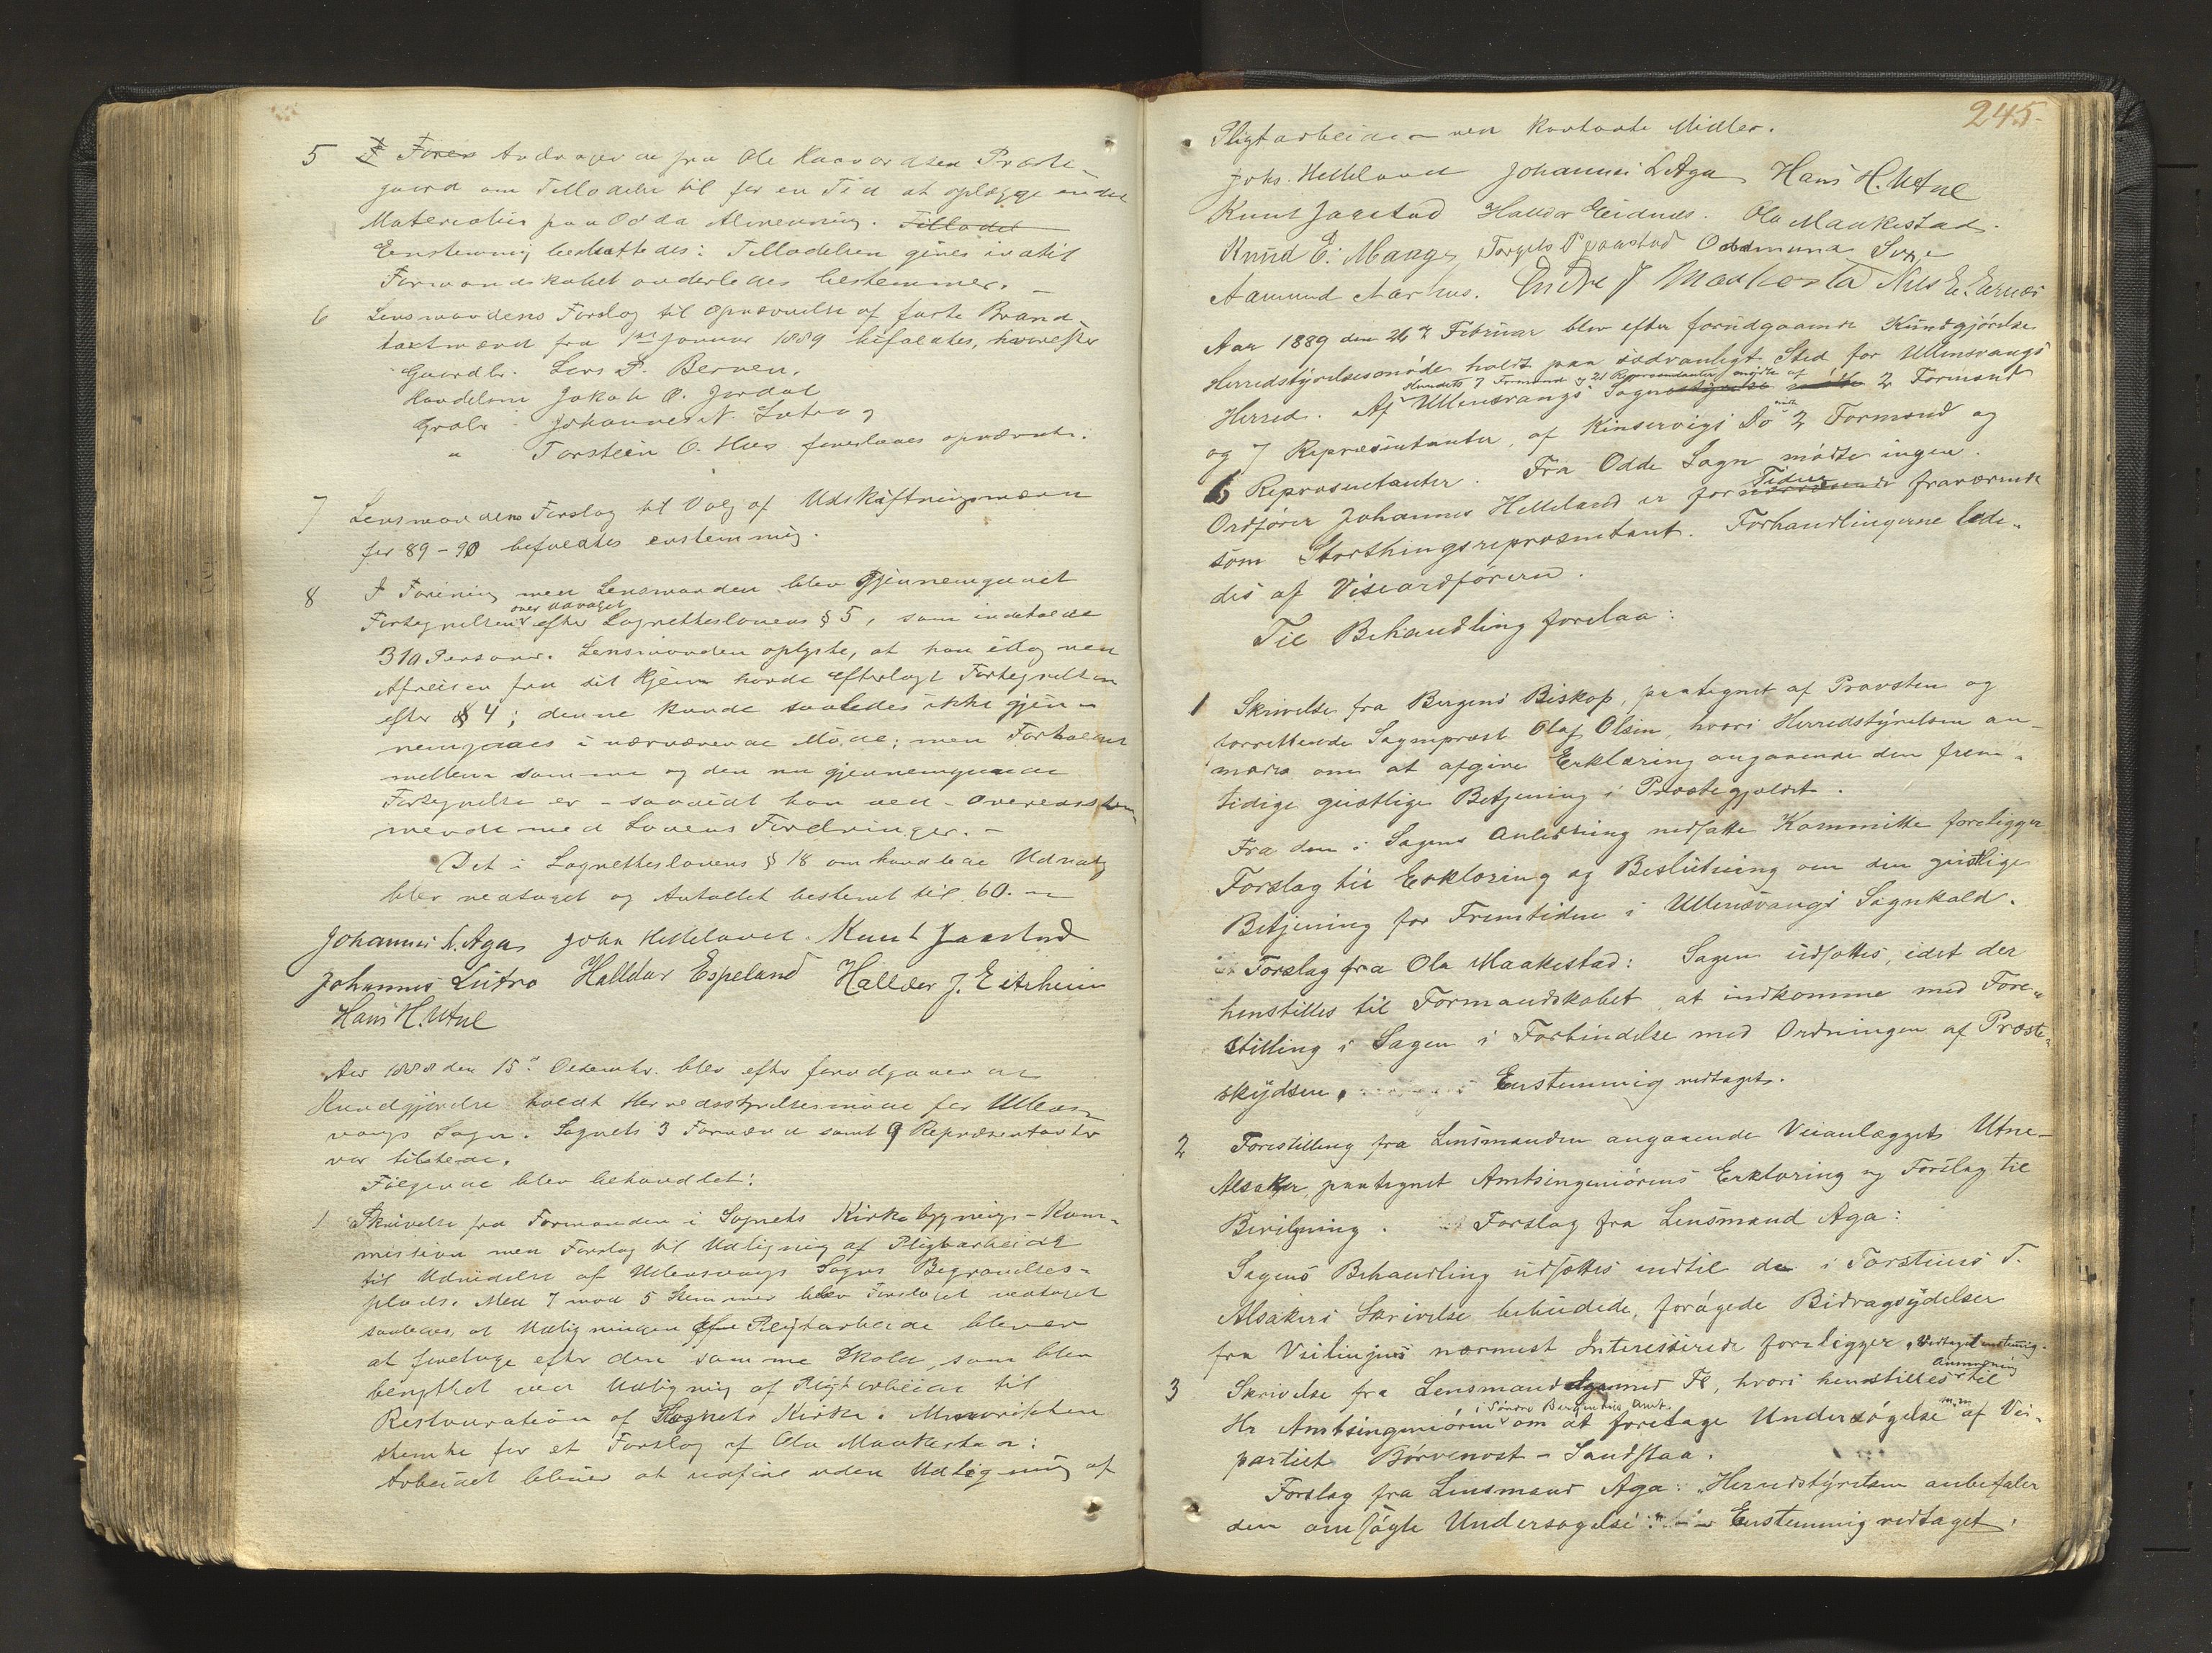 5 Andragende fra Ole Haavardsen Præste-
gaard om Tilladelse til for en Tid at oplægge endel
Materialier paa Odda Almenning. Tilladel
Enstemmig besluttedes: Tilladelsen gives indtil
Formandskabet anderledes bestemmer. —
6 Lensmandens Forslag til Opnævnelse af faste Brand-
taxtmænd fra 1ste Januar 1889 bifaldtes, hvorefter
Gaardbr. Lars P. Berven.
Handelsm Jakob O. Jordal
Grdbr Johannes N. Lutro og
" Torstein O. Hus opnævnte.
7 Lensmandens Forslag til Valg af Udskiftningsmænd
for 89-90 bifaldtes enstemmig.
8 I Forening med Lensmanden blev gjennemgaaet
over Udvalget
Fortegnelsen efter Lagretteslovens § 5, som indeholdt
310 Personer. Lensmanden oplyste, at han idag ved
Afreisen fra sit Hjem havde efterlagt Fortegnelsen
efter § 4; denne kunde saaledes ikke gjen-
nemgaaes i nærværende Møde; men Forholdet
mellem samme og den nu gjennemgaaede
Fortegnelse er - saavidt han ved - overensstem-
mende med Lovens Fordringer. —
Det i Lagretteslovens § 18 omhandlede Udvalg
blev vedtaget og Antallet bestemt til 60. —
Johannes L. Aga Johs Helleland. Knut Jaastad
Johannes Lutro Halldor Espeland Halldor J. Eitrheim
Hans H. Utne
Aar 1888 den 15de Decembr. blev efter forudgaaende
Kundgjørelse holdt Herredsstyrelsesmøde for Ullens-
vangs Sogn. Sognets 3 Formænd samt 9 Repræsentanter
var tilstede.
Følgende blev behandlet:
1 Skrivelse fra Formanden i Sognets Kirkebygnings-Kom-
mission med Forslag til Udligning af Pligtarbeide
til Udvidelse af Ullensvangs Sogns Begravelses-
plads. Med 7 mod 5 Stemmer blev Forslaget vedtaget
saaledes, at Udligningen af Pligtarbeide bliver
at foretage efter den samme Skala, som blev
benyttet ved Udligning af Pligtarbeide til
Restauration af Sognets Kirke. Minoriteten
stemte for et Forslag af Ola Maakestad:
Arbeidet bliver at udføre uden Udligning af
245.
Pligtarbeide — ved kontante Midler.
Johs. Helleland Johannes L Aga Hans H. Utne
Knut Jaastad Halldor Eidnes. Ola Maakestad.
Knud E. Mauge Torgils Oddmund
Aamund Aarhus. Endre J Maakestad Nils E. Ernes
Aar 1889 den 26de Februar blev efter forudgaaende Kundgjørelse
Herredstyrelsesmøde holdt paa sædvanligt Sted for Ullensvangs
Herredets 7 Formænd og 21 Repræsentanter mødte af
Herred. Af Ullensvangs Sogn 2 Formænd
og 7 Repræsentanter, af Kinservigs Do mødte 2 Formænd og
6 Repræsentanter. Fra Odde Sogn mødte ingen.
Ordfører Johannes Helleland er for Tiden fraværende
som Storthingsrepræsentant. Forhandlingerne lede-
des af Viseordføreren.
Til Behandling forelaa:
1 Skrivelse fra Bergens Biskop, paategnet af Provsten og
forrettende Sognepræst Olaf Olsen, hvori Herredstyrelsen an-
modes om at afgive Erklæring angaaende den frem-
tidige geistlige Betjening i Præstegjeldet.
Fra den i Sagens Anledning nedsatte Kommitte foreligger
Forslag til Erklæring og Beslutning om den geistlige
Betjening for Fremtiden i Ullensvangs Sognekald.
Forslag fra Ola Maakestad: Sagen udsættes, idet der
henstilles til Formandskabet at indkomme med Fore-
stilling i Sagen i Forbindelse med Ordningen af Præste-
skydsen. Enstemmig vedtaget.
2 Forestilling fra Lensmanden angaaende Veianlægget Utne-
Alsaker, paategnet Amtsingeniørens Erklæring og Forslag til
Bevilgning. Forslag fra Lensmand Aga:
Sagens Behandling udsættes indtil de i Torsteins T.
Alsakers Skrivelse bebudede, forøgede Bidragsydelser
fra Veilinjens nærmest Interesserede foreligger. Vedtaget enstemmig.
3 Skrivelse fra Lensmand Aga med Fl, hvori henstilles Anmodning til
Hr Amtsingeniøren i Søndre Bergenhus Amt. om at foretage Undersøgelse m.m. af Vei-
partiet Børvenost - Sandstaa.
Forslag fra Lensmand Aga: "Herredstyrelsen anbefaler
den omsøgte Undersøgelse." — Enstemmig vedtaget.